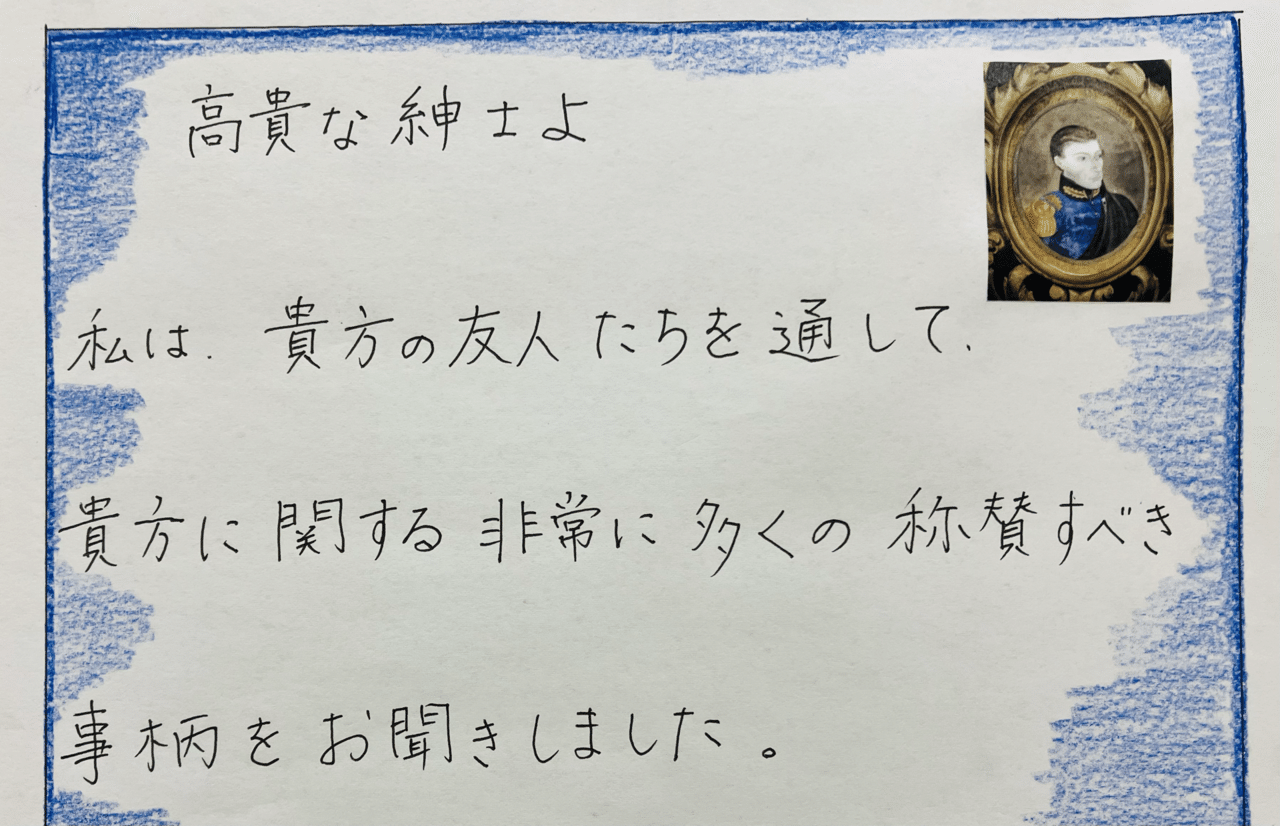 高貴な紳士よ
私は、貴方の友人たちを通して、
貴方に関する非常に多くの称賛すべき
事柄をお聞きしました。